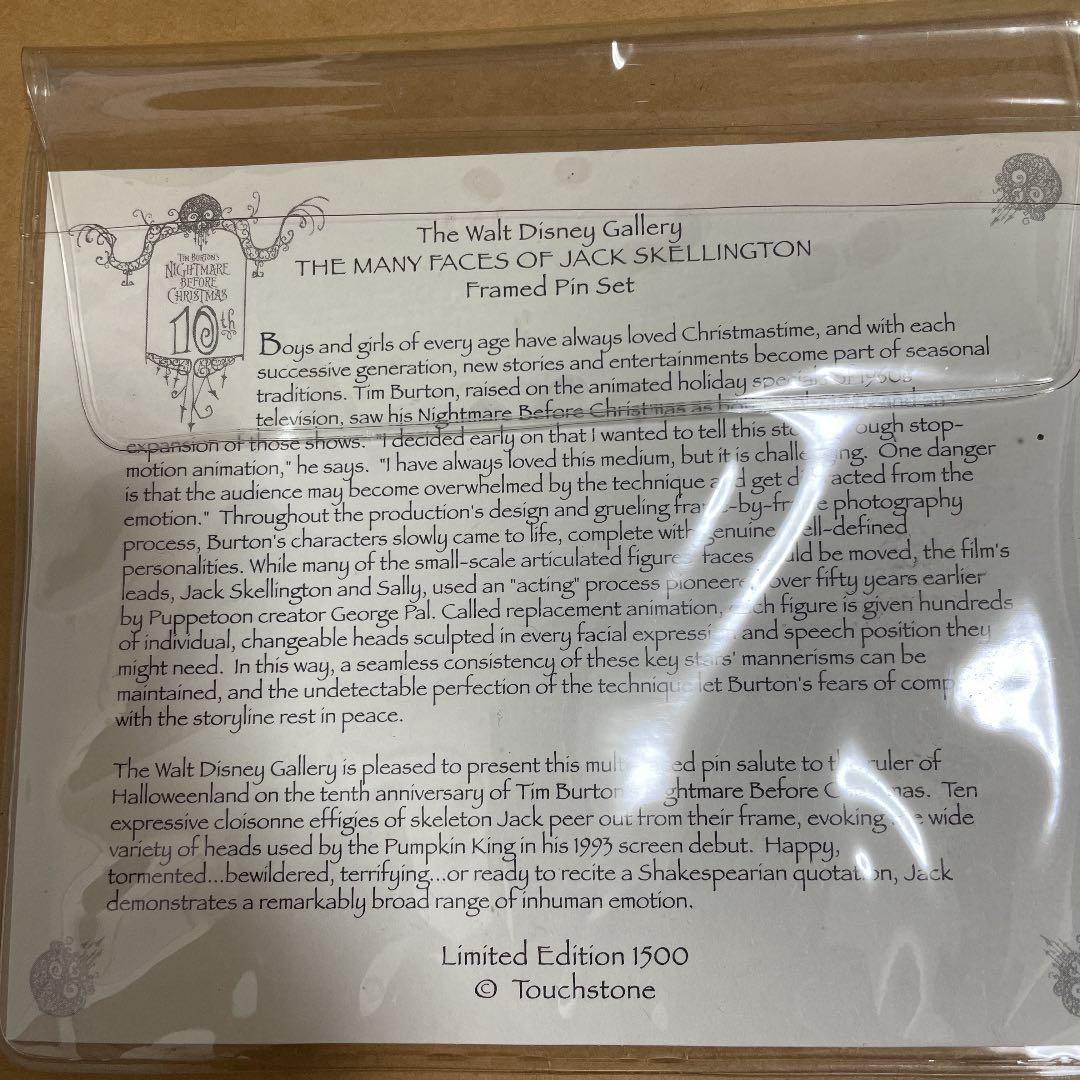 TIM BURTON'S
NIGHTMARE
BEFORE
CHRISTMAS
10th
The Walt Disney Gallery
THE MANY FACES OF JACK SKELLINGTON
Framed Pin Set
Boys and girls of every age have always loved Christmastime, and with each
successive generation, new stories and entertainments become part of seasonal
traditions. Tim Burton, raised on the animated holiday specials of 1960s
television, saw his Nightmare Before Christmas as
expansion of those shows. "I decided early on that I wanted to tell this through stop-
motion animation," he says. "I have always loved this medium, but it is challenging. One danger
is that the audience may become overwhelmed by the technique and get distracted from the
emotion." Throughout the production's design and grueling frame-by-frame photography
process, Burton's characters slowly came to life, complete with genuine well-defined
personalities. While many of the small-scale articulated figures' faces could be moved, the film's
leads, Jack Skellington and Sally, used an "acting" process pioneered over fifty years earlier
by Puppetoon creator George Pal. Called replacement animation, each figure is given hundreds
of individual, changeable heads sculpted in every facial expression and speech position they
might need. In this way, a seamless consistency of these key stars' mannerisms can be
maintained, and the undetectable perfection of the technique let Burton's fears of
with the storyline rest in peace.
The Walt Disney Gallery is pleased to present this pin salute to the ruler of
Halloweenland on the tenth anniversary of Tim Burton's Nightmare Before Christmas. Ten
expressive cloisonne effigies of skeleton Jack peer out from their frame, evoking the wide
variety of heads used by the Pumpkin King in his 1993 screen debut. Happy,
tormented...bewildered, terrifying...or ready to recite a Shakespearian quotation, Jack
demonstrates a remarkably broad range of inhuman emotion.
Limited Edition 1500
© Touchstone